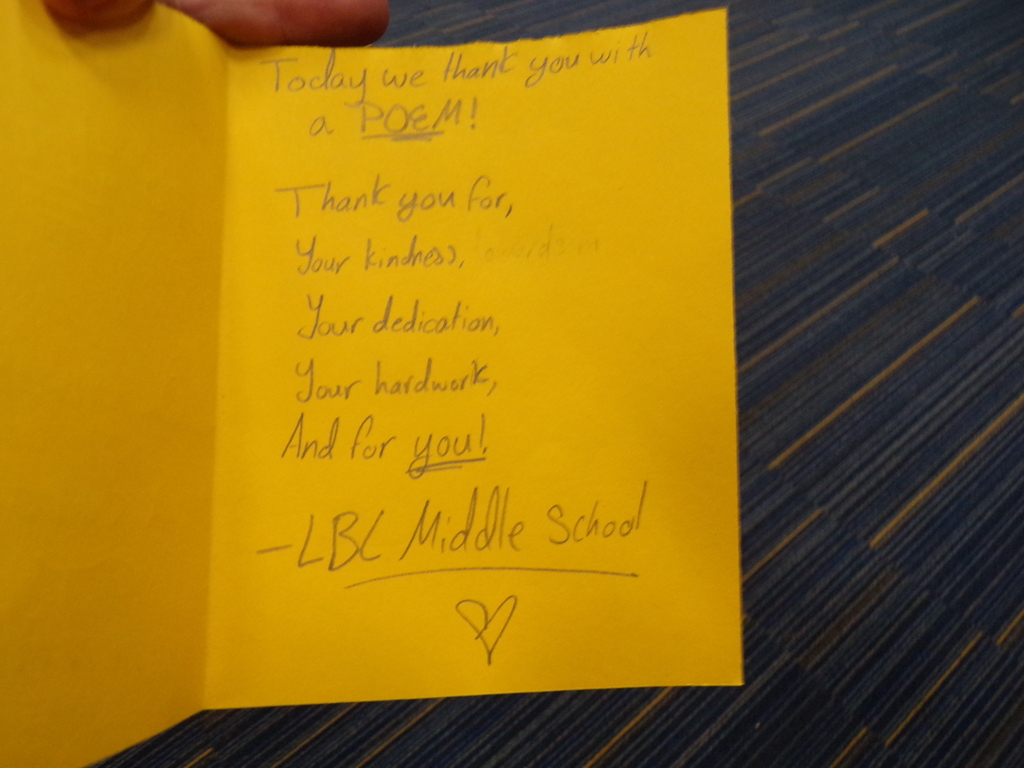 Today we thank you with
a POEM!
Thank you for,
Your kindness,
Your dedication,
Your hardwork,
And for you!
-LBC Middle School